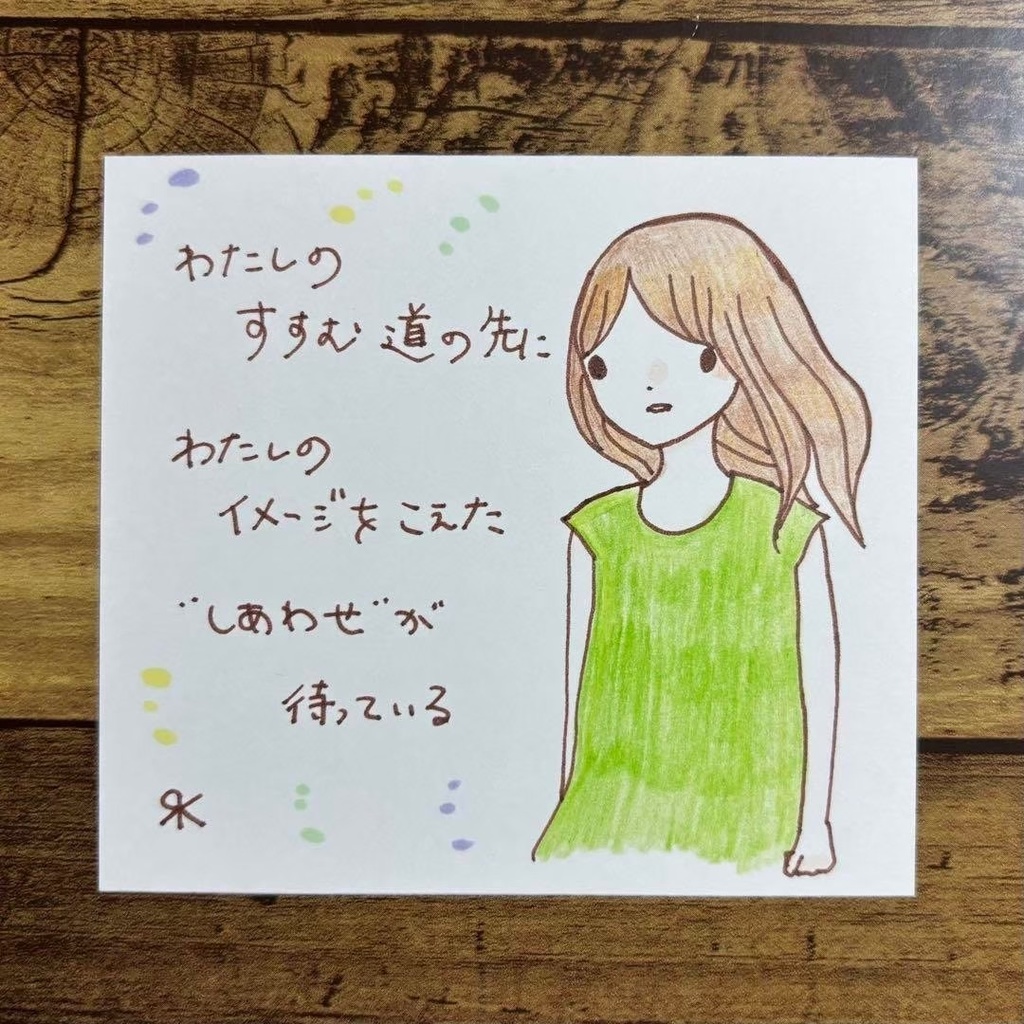 わたしの
すすむ 道の先に
わたしの
イメージをこえた
"しあわせ"が
待っている